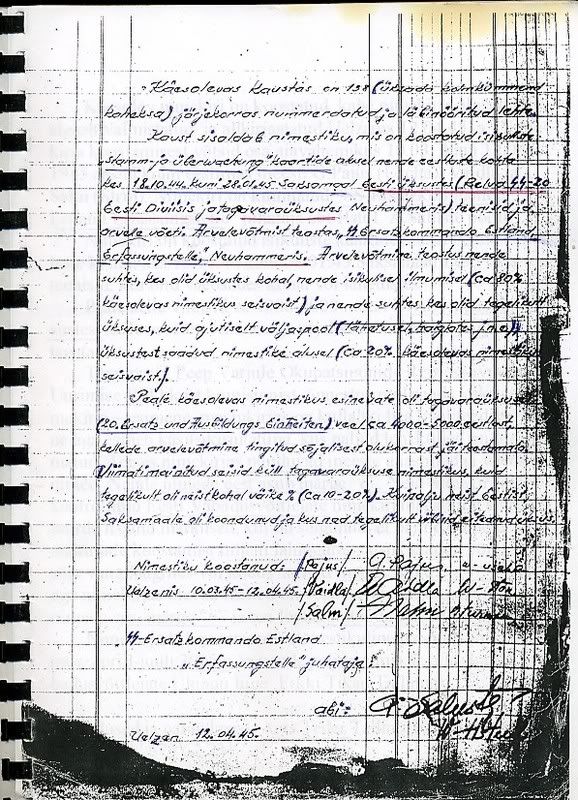 Käesolevas kaustas on 138 (üksada kolmkümmend
kaheksa) järjekorras nummerdatud ja läbinööritud lehte.
Kaust sisaldab nimestiku, mis on koostatud isikute
„Stamm- ja überwachung" kaartide alusel nende eestlaste kohta
kes 18.10.44. kuni 28.01.45. Saksamaal Eesti üksustes (Relva SS-20
Eesti Diviisis ja tagavaraüksustes Neuhammeris) teenisid ja
arvele võeti. Arvelevõtmist teostas „SS Ersatzkommando Estland
Erfassungstelle," Neuhammeris. Arvelevõtmine teostus nende
suhtes, kes olid üksustes kohal, nende isikulisel ilmumisel (ca 80%
käesolevas nimestikus seisvaist) ja nende suhtes kes olid tegelikult
üksuses, kuid ajutiselt väljaspool (lähetusel, haiglates j.n.e.)
üksustest saadud nimestike alusel (ca 20% käesolevas nimestikus
seisvaist).
Peale käesolevas nimestikus esinevate oli tagavaraüksuses
(20. Ersatz und Ausbildungs Einheiten) veel ca 4000-5000 eestlast,
kellede arvelevõtmine tingitud sõjalisest olukorrast jäi teostamata.
Viimati mainitud seisid küll tagavaraüksuse nimestikus, kuid
tegelikult oli neist kohal väike % (ca 10-20%). Kui palju neid Eestist
Saksamaale oli koondunud ja kus nad tegelikult viibisid ei teadnud üksus.
Nimestiku koostanud: /Pajus/ A. Pajus
Uelzenis 10.03.45-12.04.45. /Vaidla/ Vaidla
/Salm/
SS-Ersatzkommando Estland
„Erfassungstelle" juhataja:
abi:
Uelzen 12.04.45.